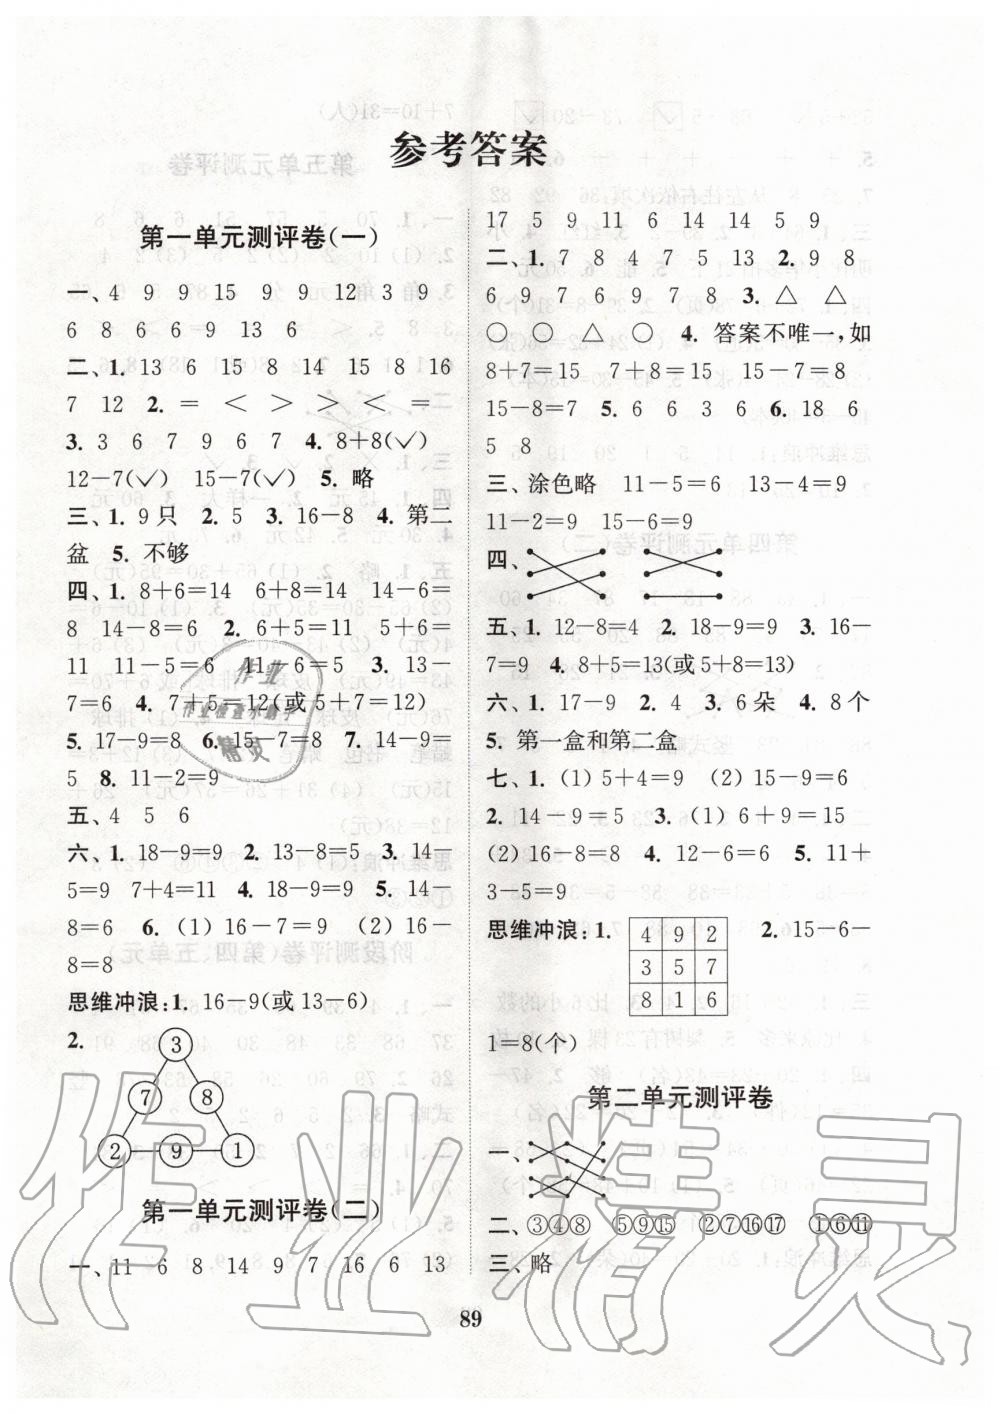 参考答案
第一单元测评卷(一)
一、4 9 9 15 9 9 12 3 9
6 8 6 6 9 13 6
二、1. 13 6 15 8 14 15 8 16
7 12 2. = < > > < =
3. 3 6 7 9 6 7 4. 8+8(√)
12-7(√) 15-7(√) 5. 略
三、1. 9只 2. 5 3. 16-8 4. 第二
盆 5. 不够
四、1. 8+6=14 6+8=14 14-6=
8 14-8=6 2. 6+5=11 5+6=
11 11-5=6 11-6=5 3. 13-
7=6 4. 7+5=12(或5+7=12)
5. 17-9=8 6. 15-7=8 7. 14-9=
5 8. 11-2=9
五、4 5 6
六、1. 18-9=9 2. 13-8=5 3. 14-
5=9 7+4=11 4. 18-9=9 5. 14-
8=6 6. (1) 16-7=9 (2) 16-
8=8
思维冲浪:1. 16-9(或13-6)
2.
3
7 8
2 9 1
第一单元测评卷(二)
一、11 6 8 14 9 7 16 6 13
17 5 9 11 6 14 14 5 9
二、1. 7 8 4 7 5 13 2. 9 8
6 9 7 6 9 7 8 3. △ △
○ ○ △ ○ 4. 答案不唯一,如
8+7=15 7+8=15 15-7=8
15-8=7 5. 6 6 3 6 6. 18 6
5 8
三、涂色略 11-5=6 13-4=9
11-2=9 15-6=9
四、
五、1. 12-8=4 2. 18-9=9 3. 16-
7=9 4. 8+5=13(或5+8=13)
六、1. 17-9 2. 4 3. 6朵 4. 8个
5. 第一盒和第二盒
七、1. (1) 5+4=9 (2) 15-9=6
2. 14-9=5 3. (1) 6+9=15
(2) 16-8=8 4. 12-6=6 5. 11+
3-5=9
思维冲浪:1. 2. 15-6-
4 9 2
3 5 7
8 1 6
1=8(个)
第二单元测评卷
一、
二、③④⑧ ⑤⑨⑮ ②⑦⑯⑰ ①⑥⑪
三、略
89
作业
作业检查小助手
精灵
作业精灵